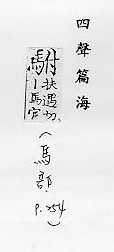 四聲篇海
駙扶遇切
丨馬官
(馬部
P.254)